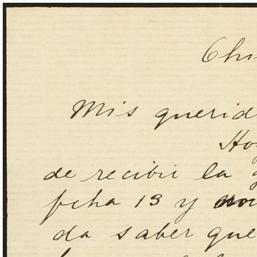 Chi
Mis querid
Hoy
de recibir la
fcha 13 y
da saber que